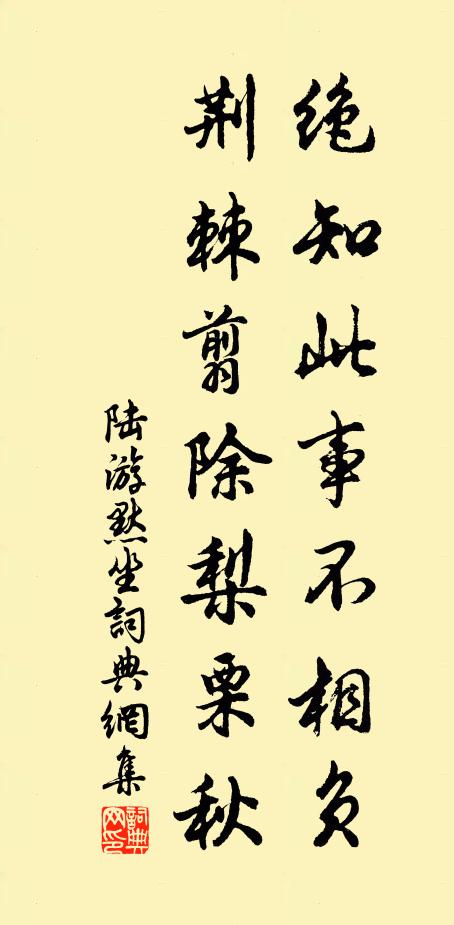 绝知此事不相负
荆棘翦除梨栗秋
陆游默坐詞典網集
詞典网印